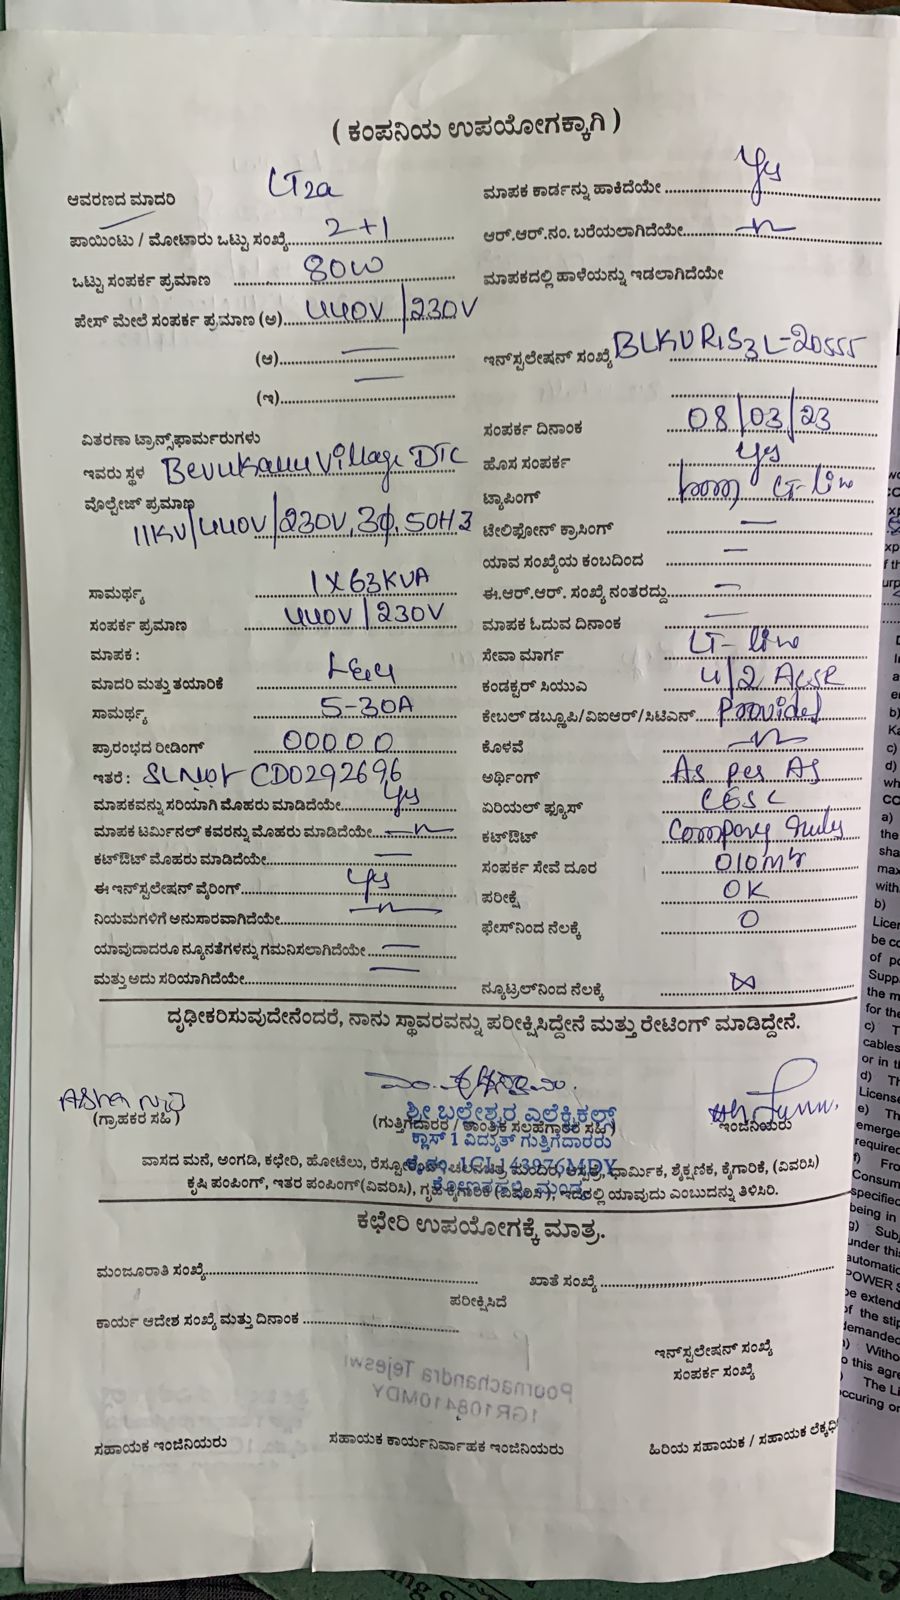 ( ಕಂಪನಿಯ ಉಪಯೋಗಕ್ಕಾಗಿ )
ಆವರಣದ ಮಾದರಿ LT2a
ಪಾಯಿಂಟು / ಮೋಟಾರು ಒಟ್ಟು ಸಂಖ್ಯೆ 2+1
ಒಟ್ಟು ಸಂಪರ್ಕ ಪ್ರಮಾಣ 80W
ಪೇಸ್ ಮೇಲೆ ಸಂಪರ್ಕ ಪ್ರಮಾಣ (ಅ) 440V / 230V
(ಆ) —
(ಇ) —
ವಿತರಣಾ ಟ್ರಾನ್ಸ್‌ಫಾರ್ಮರುಗಳು
ಇವರು ಸ್ಥಳ Village DTC
ವೊಲ್ಟೇಜ್ ಪ್ರಮಾಣ
11KV/440V/230V, 3ϕ, 50HZ
ಸಾಮರ್ಥ್ಯ 1X63KVA
ಸಂಪರ್ಕ ಪ್ರಮಾಣ 440V / 230V
ಮಾಪಕ :
ಮಾದರಿ ಮತ್ತು ತಯಾರಿಕೆ
ಸಾಮರ್ಥ್ಯ 5-30A
ಪ್ರಾರಂಭದ ರೀಡಿಂಗ್ 00000
ಇತರೆ : SLNo: CD0292696
ಮಾಪಕವನ್ನು ಸರಿಯಾಗಿ ಮೊಹರು ಮಾಡಿದೆಯೇ Yes
ಮಾಪಕ ಟರ್ಮಿನಲ್ ಕವರನ್ನು ಮೊಹರು ಮಾಡಿದೆಯೇ
ಕಟ್‌ಔಟ್ ಮೊಹರು ಮಾಡಿದೆಯೇ —
ಈ ಇನ್‌ಸ್ಟಲೇಷನ್ ವೈರಿಂಗ್ Yes
ನಿಯಮಗಳಿಗೆ ಅನುಸಾರವಾಗಿದೆಯೇ
ಯಾವುದಾದರೂ ನ್ಯೂನತೆಗಳನ್ನು ಗಮನಿಸಲಾಗಿದೆಯೇ —
ಮತ್ತು ಅದು ಸರಿಯಾಗಿದೆಯೇ —
ಮಾಪಕ ಕಾರ್ಡನ್ನು ಹಾಕಿದೆಯೇ Yes
ಆರ್.ಆರ್.ನಂ. ಬರೆಯಲಾಗಿದೆಯೇ
ಮಾಪಕದಲ್ಲಿ ಹಾಳೆಯನ್ನು ಇಡಲಾಗಿದೆಯೇ
ಇನ್‌ಸ್ಟಲೇಷನ್ ಸಂಖ್ಯೆ
ಸಂಪರ್ಕ ದಿನಾಂಕ 08/03/23
ಹೊಸ ಸಂಪರ್ಕ Yes
ಟ್ಯಾಪಿಂಗ್ from LT-line
ಟೇಲಿಫೋನ್ ಕ್ರಾಸಿಂಗ್ —
ಯಾವ ಸಂಖ್ಯೆಯ ಕಂಬದಿಂದ —
ಈ.ಆರ್.ಆರ್. ಸಂಖ್ಯೆ ನಂತರದ್ದು —
ಮಾಪಕ ಓದುವ ದಿನಾಂಕ —
ಸೇವಾ ಮಾರ್ಗ LT-line
ಕಂಡಕ್ಟರ್ ಸಿಯುಎ 4/2 ACSR
ಕೇಬಲ್ ಡಬ್ಲ್ಯೂಪಿ/ವಿಐಆರ್/ಸಿಟಿಎನ್ Provided
ಕೊಳವೆ
ಅರ್ಥಿಂಗ್ As per
ಏರಿಯಲ್ ಫ್ಯೂಸ್ CESC
ಕಟ್‌ಔಟ್ Company
ಸಂಪರ್ಕ ಸೇವೆ ದೂರ 010Mtr
ಪರೀಕ್ಷೆ OK
ಫೇಸ್‌ನಿಂದ ನೆಲಕ್ಕೆ 0
ನ್ಯೂಟ್ರಲ್‌ನಿಂದ ನೆಲಕ್ಕೆ
ದೃಢೀಕರಿಸುವುದೇನೆಂದರೆ, ನಾನು ಸ್ಥಾವರವನ್ನು ಪರೀಕ್ಷಿಸಿದ್ದೇನೆ ಮತ್ತು ರೇಟಿಂಗ್ ಮಾಡಿದ್ದೇನೆ.
(ಗ್ರಾಹಕರ ಸಹಿ)
ಶ್ರೀ ಬಲೇಶ್ವರ ಎಲೆಕ್ಟ್ರಿಕಲ್ಸ್
(ಗುತ್ತಿಗೆದಾರರ / ತಾಂತ್ರಿಕ ಸಲಹೆಗಾರರ ಸಹಿ)
ಇಂಜಿನಿಯರು
ಕ್ಲಾಸ್ 1 ವಿದ್ಯುತ್ ಗುತ್ತಿಗೆದಾರರು
ವಾಸದ ಮನೆ, ಅಂಗಡಿ, ಕಛೇರಿ, ಹೋಟೆಲು, ಧಾರ್ಮಿಕ, ಶೈಕ್ಷಣಿಕ, ಕೈಗಾರಿಕೆ, (ವಿವರಿಸಿ)
ಕೃಷಿ ಪಂಪಿಂಗ್, ಇತರ ಪಂಪಿಂಗ್(ವಿವರಿಸಿ), ಗೃಹ ಕೈಗಾರಿಕೆ (ವಿವರಿಸಿ), ಇದರಲ್ಲಿ ಯಾವುದು ಎಂಬುದನ್ನು ತಿಳಿಸಿರಿ.
ಕಛೇರಿ ಉಪಯೋಗಕ್ಕೆ ಮಾತ್ರ.
ಮಂಜೂರಾತಿ ಸಂಖ್ಯೆ
ಖಾತೆ ಸಂಖ್ಯೆ
ಪರೀಕ್ಷಿಸಿದೆ
ಕಾರ್ಯ ಆದೇಶ ಸಂಖ್ಯೆ ಮತ್ತು ದಿನಾಂಕ
ಇನ್‌ಸ್ಟಲೇಷನ್ ಸಂಖ್ಯೆ
ಸಂಪರ್ಕ ಸಂಖ್ಯೆ
Poornachandra Tejeswi
1GR108410MDY
ಸಹಾಯಕ ಇಂಜಿನಿಯರು
ಸಹಾಯಕ ಕಾರ್ಯನಿರ್ವಾಹಕ ಇಂಜಿನಿಯರು
ಹಿರಿಯ ಸಹಾಯಕ / ಸಹಾಯಕ